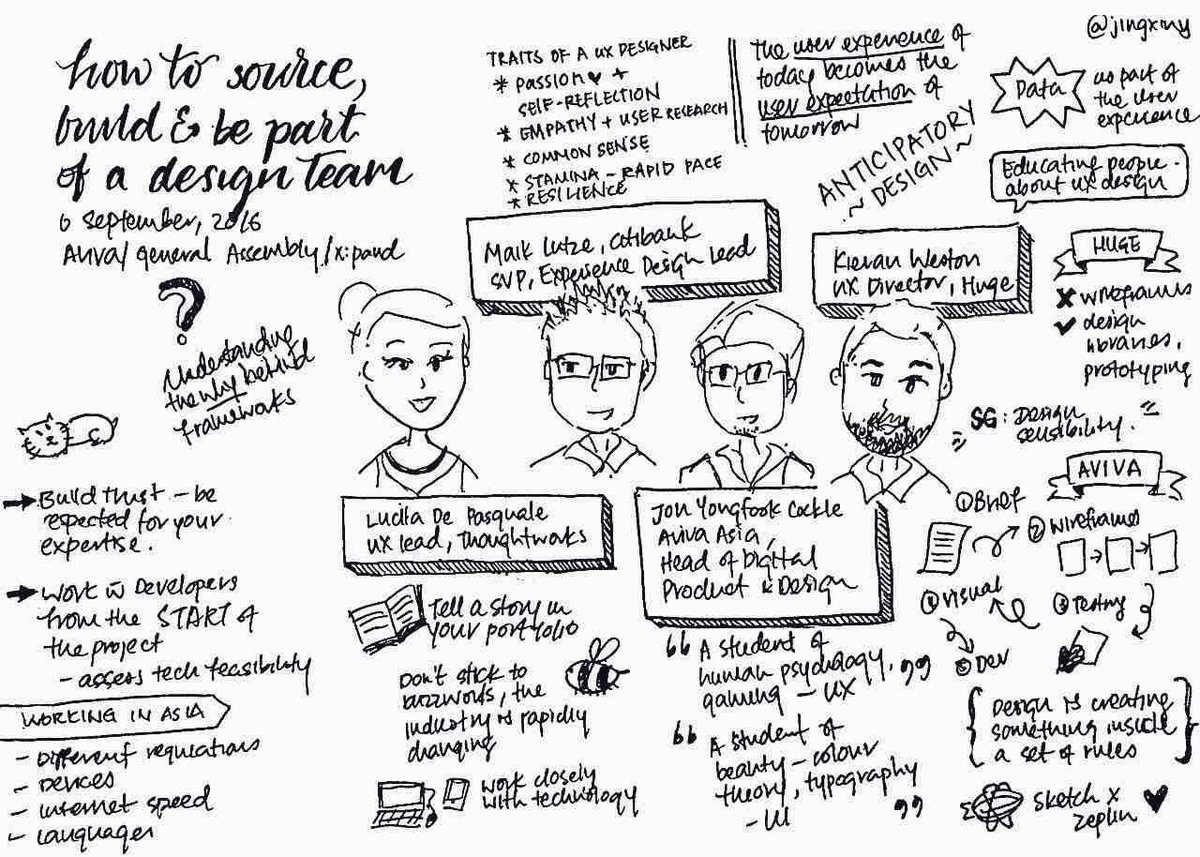 how to source,
build & be part
of a design team
6 september, 2016
Aviva/ general Assembly/x:pand
@jingxmy
TRAITS OF A UX DESIGNER
* PASSION ♥ +
SELF-REFLECTION
* EMPATHY + USER RESEARCH
* COMMON SENSE
* STAMINA - RAPID PACE
* RESILIENCE
the user experience of
today becomes the
user expectation of
tomorrow
ANTICIPATORY
~ DESIGN ~
Data
as part of
the user
experience
Educating people
about ux design
Maik Lutze, Citibank
SVP, Experience Design Lead
Kieran Weston
UX Director, Huge
HUGE
✗ wireframes
✓ design
libraries,
prototyping
SG: Design
sensibility.
?
Understanding
the why behind
frameworks
→ Build trust - be
expected for your
expertise.
→ Work w̄ Developers
from the START of
the project
- assess tech feasibility
WORKING IN ASIA
- Different regulations
- Devices
- internet speed
- languages
Lucila De Pasquale
UX lead, Thoughtworks
Tell a story in
your portfolio
Don't stick to
buzzwords, the
industry is rapidly
changing
work closely
with technology
Jon Yongfook Cockle
Aviva Asia,
Head of Digital
Product & Design
“ A student of
human psychology,
gaming - UX ”
“ A student of
beauty - colour
theory, typography
- UI ”
AVIVA
① Brief
② wireframes
③ Testing
④ visual
⑤ Dev
{ Design is creating
something inside
a set of rules }
Sketch x
zeplin ♥